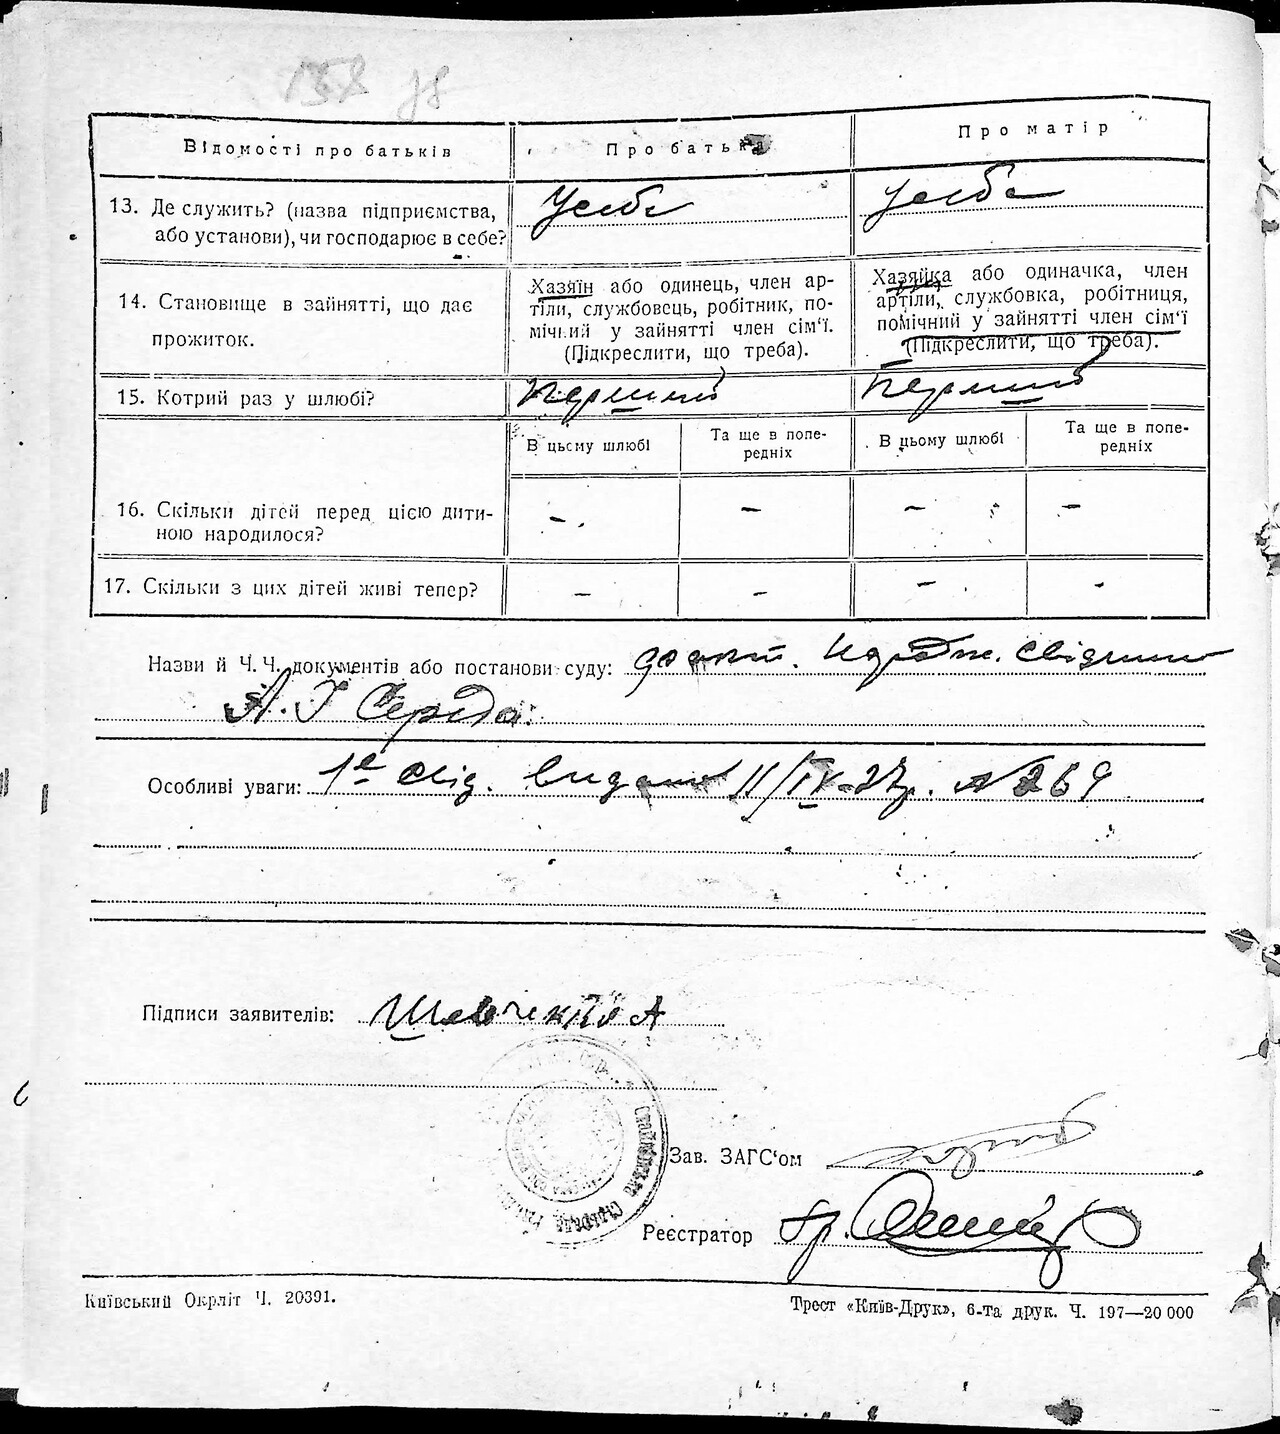 Відомості про батьків
Про батька
Про матір
13. Де служить? (назва підприємства,
або установи), чи господарює в себе?
У себе
у себе
14. Становище в зайнятті, що дає
прожиток.
Хазяїн або одинець, член ар-
тіли, службовець, робітник, по-
мічний у зайнятті член сім'ї.
(Підкреслити, що треба).
Хазяйка або одиначка, член
артіли, службовка, робітниця,
помічний у зайнятті член сім'ї
(Підкреслити, що треба).
15. Котрий раз у шлюбі?
Перший
Перший
В цьому шлюбі
Та ще в попе-
редніх
В цьому шлюбі
Та ще в попе-
редніх
16. Скільки дітей перед цією дити-
ною народилося?
– – – –
17. Скільки з цих дітей живі тепер?
– – – –
Назви й Ч. Ч. документів або постанови суду:
А. І Середа.
Особливі уваги: 1е свід. видано 11/IV-27р. № 269
Підписи заявителів: Шевченко А
Зав. ЗАГС'ом
Реєстратор
Київський Окрліт Ч. 20391.
Трест «Київ-Друк», 6-та друк. Ч. 197—20 000